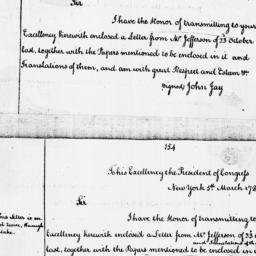 Sir
I have the Honor of transmitting to your
Excellency herewith enclosed a Letter from Mr Jefferson of 23 October
last, together with the Papers mentioned to be enclosed in it and
Translations of them, and am with great Respect and Esteem &c.
signed John Jay
154
To his Excellency the President of Congress
New York 5th March 178
Sir
his Letter is en
I have the Honor of transmitting to
Excellency herewith enclosed a Letter from Mr. Jefferson of 23
and Translations of
last, together with the Papers mentioned to be enclosed in